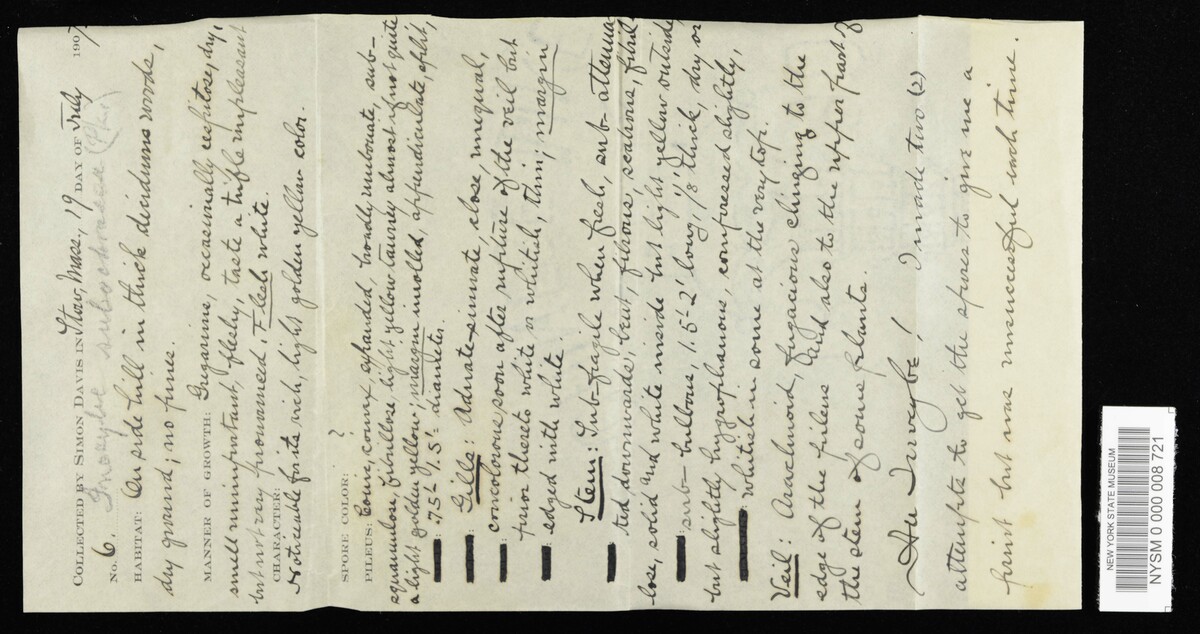 COLLECTED BY SIMON DAVIS IN Stow, Mass., 19 DAY OF July 1907
NO. 6. Inocybe subochracea (Pk.)
HABITAT: On side hill in thick deciduous woods,
dry ground, no pines.
MANNER OF GROWTH: Gregarious, occasionally cespitose, dry,
smell unimportant, fleshy, taste a trifle unpleasant
but not very pronounced, Flesh white.
CHARACTER:
Noticeable for its rich, light golden yellow color.
SPORE COLOR: ?
PILEUS: Conic, convex, expanded, broadly umbonate, sub-
squamulose, fibrillose, light yellow tawny almost if not quite
a light golden yellow, margin inrolled, appendiculate, split,
.75-1.5' diameter.
Gills: Adnate-sinuate, close, unequal,
concolorous soon after rupture of the veil but
prior thereto white or whitish, thin; margin
edged with white.
Stem: Sub-fragile when fresh, sub-attenua-
ted downwards, bent, fibrous, scabrous, fibril-
lose, solid and white inside but light yellow outside,
sub-bulbous, 1.5-2' long, 1/8" thick, dry or
but slightly hygrophanous, compressed slightly,
whitish in some at the very top.
Veil: Arachnoid, fugacious clinging to the
edge of the pileus and also to the upper part of
the stem of some plants.
An Inocybe! I made two (2)
attempts to get the spores to give me a
print but was unsuccessful each time.
NEW YORK STATE MUSEUM
NYSM 0 000 008 721